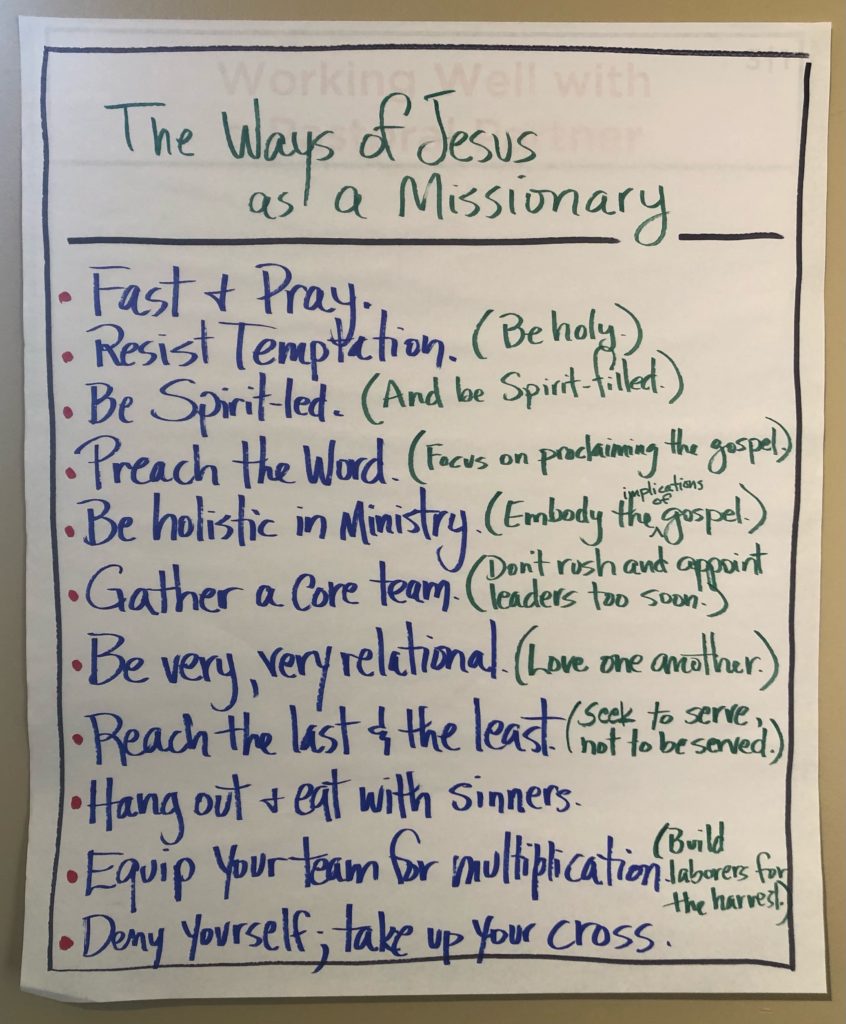 The Ways of Jesus
as a Missionary
• Fast & Pray.
• Resist Temptation. (Be holy.)
• Be Spirit-led. (And be Spirit-filled.)
• Preach the Word. (Focus on proclaiming the gospel.)
• Be holistic in Ministry. (Embody the implications of gospel.)
• Gather a core team. (Don't rush and appoint
leaders too soon.)
• Be very, very relational. (Love one another.)
• Reach the last & the least. (Seek to serve,
not to be served.)
• Hang out & eat with sinners.
• Equip your team for multiplication. (Build
laborers for
the harvest.)
• Deny yourself; take up your cross.
Working Well with